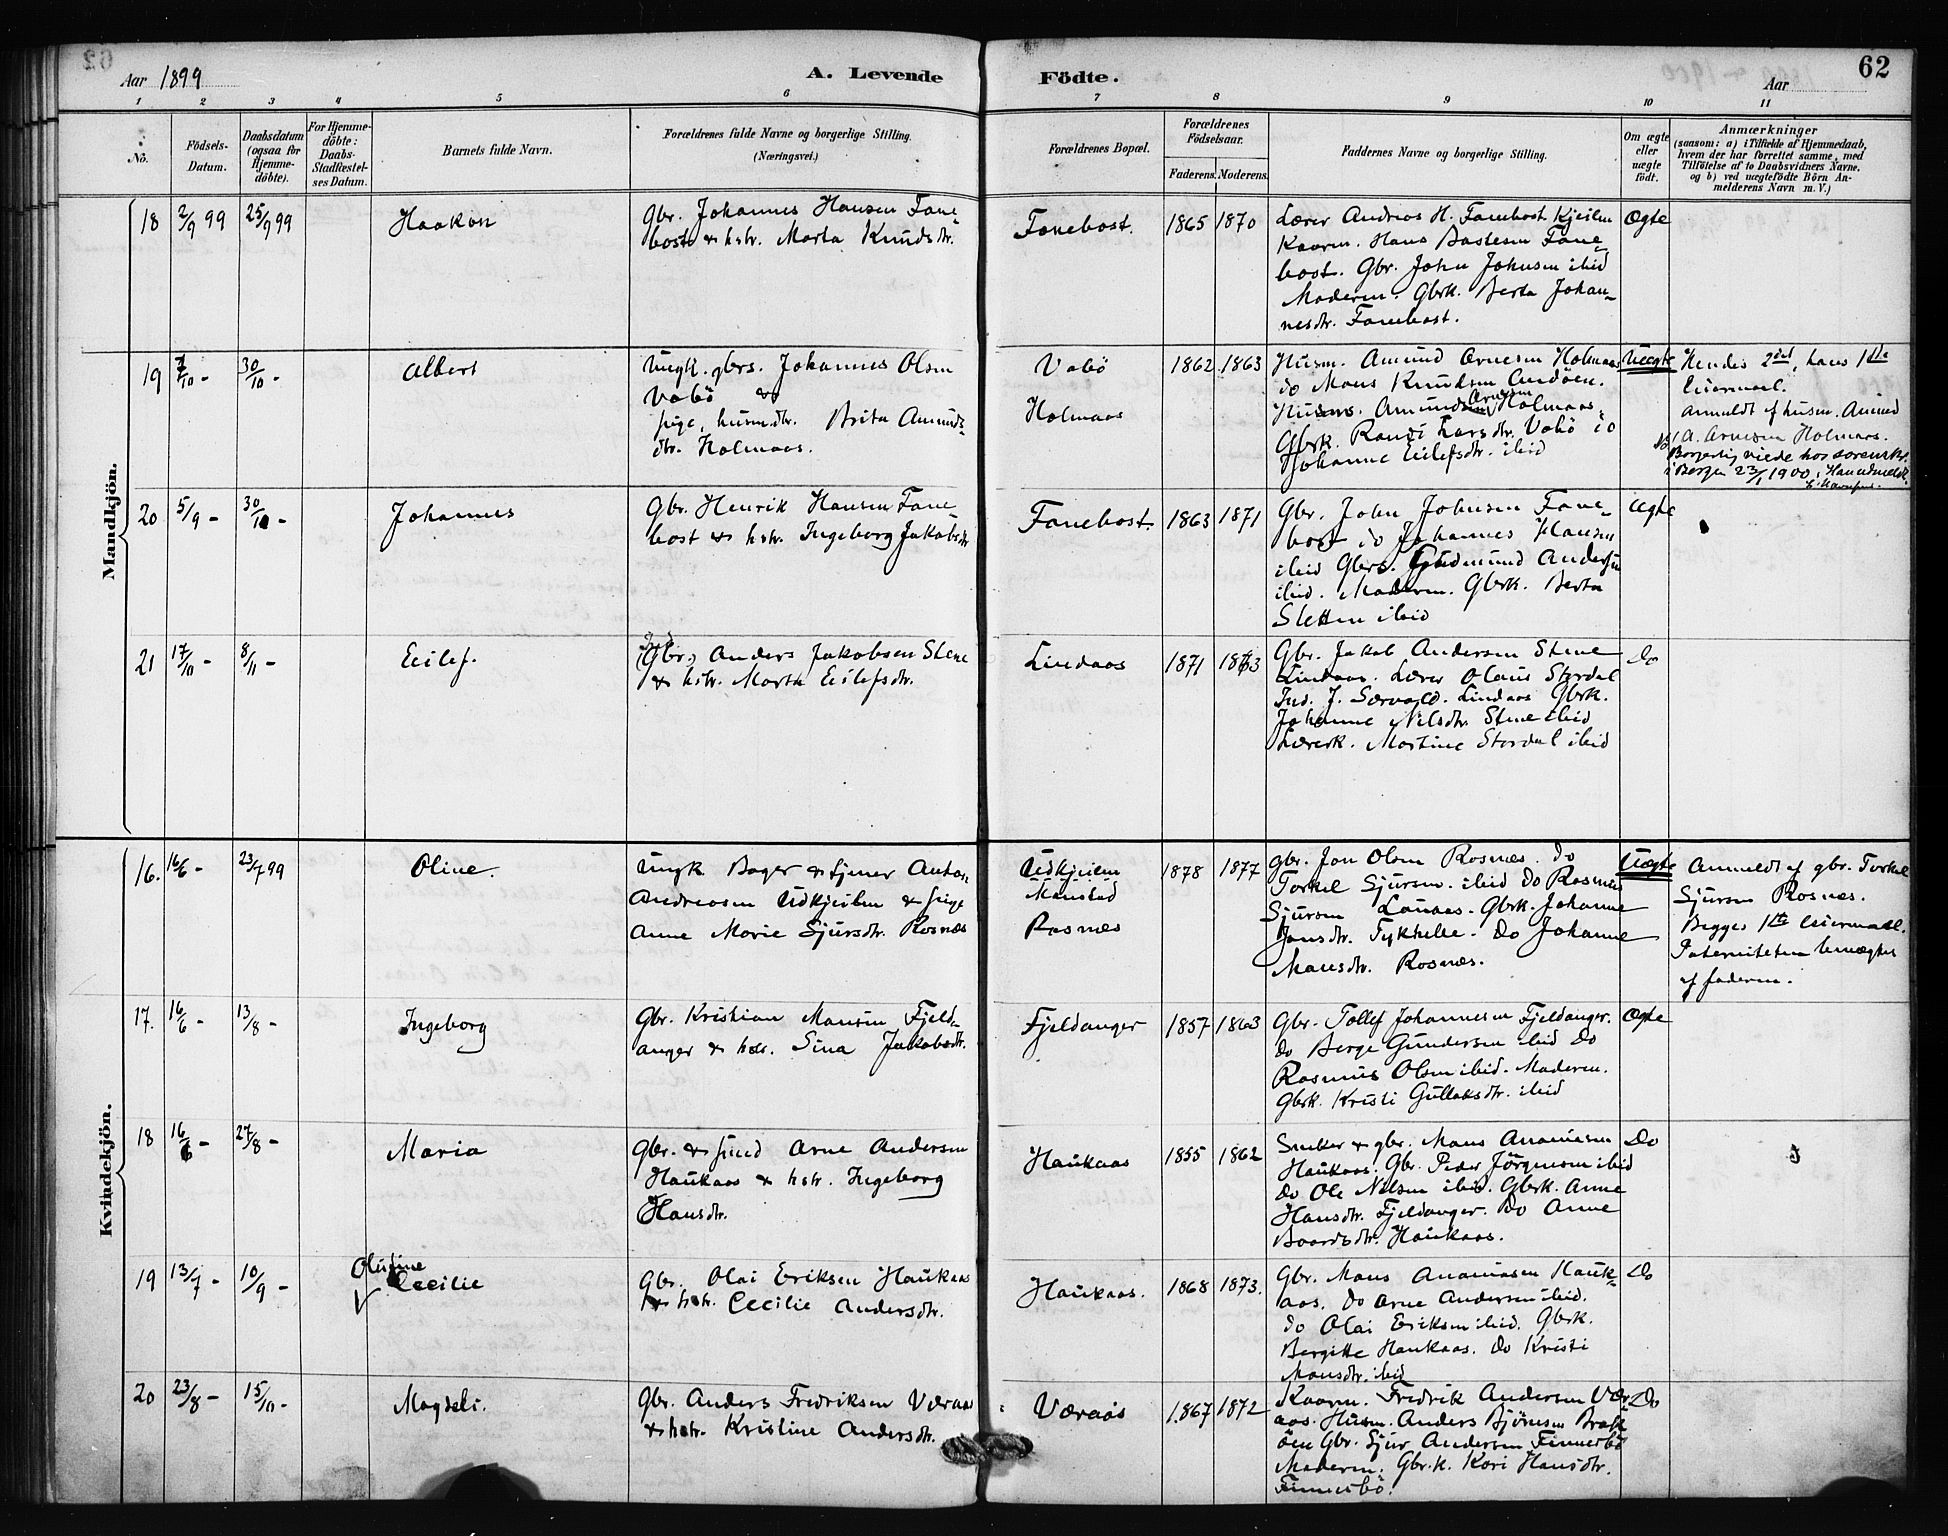 62
Aar 1899
A. Levende Födte.
Aar
1 2 3 4 5 6 7 8 9 10 11
No.
Födsels-
Datum.
Daabsdatum
(ogsaa for
Hjemme-
döbte).
For Hjemme-
döbte:
Daabs-
Stadfæstel-
ses Datum.
Barnets fulde Navn.
Forældrenes fulde Navne og borgerlige Stilling.
(Næringsvei.)
Forældrenes Bopæl.
Forældrenes
Födselsaar.
Faderens. Moderens.
Faddernes Navne og borgerlige Stilling.
Om ægte
eller
uægte
födt.
Anmærkninger
(saasom: a) i Tilfælde af Hjemmedaab,
hvem der har forrettet samme, med
Tilföielse af to Daabsvidners Navne,
og b) ved uægtefödte Börn An-
melderens Navn m. V.)
Mandkjön.
18 2/9 99 25/9 99
Haakon
Gbr. Johannes Hansen Fane-
bost & hstr. Marta Knudsdtr.
Fanebost.
1865 1870
Lærer Andreas H. Fanebost Kjeilen
Kaarm. Hans Bastesen Fane-
bost. Gbr. John Johnsen ibid
Moderen. Gbrk. Berta Johan-
nesdtr. Fanebost.
Ægte
19 7/10 - 30/10 -
Albert
Ungk. gbrs. Johannes Olsen
Vabö &
pige, husm.dtr. Brita Amunds-
dtr. Holmaas.
Vabö
Holmaas
1862 1863
Husm. Amund Arnesen Holmaas
do Mons Knudsen Andöen.
Husms. Amund Arnesen Holmaas.
Gbrk. Randi Larsdtr. Vabö
Johanne Eilefsdtr. ibid
Uægte
Hendes 2det, hans 1ste
Leiermaal.
Anmeldt af husm. Amund
A. Arnesen Holmaas.
Borgerlig viede hos sorenskr.
i Bergen 23/1 1900.
20 5/9 - 30/10 -
Johannes
Gbr. Henrik Hansen Fane-
bost & hstr. Ingeborg Jakobsdtr
Fanebost.
1863 1871
Gbr. John Johnsen Fane-
bost do Johannes Hansen
ibid Gbrs. Gudmund Andersen
ibid. Moderen. Gbrk. Berta
Sletten ibid
Ægte
21 17/10 - 8/11 -
Eilef.
Gbr. Anders Jakobsen Stene
& hstr. Marta Eilefsdtr.
Lindaas
1871 1863
Gbr. Jakob Andersen Stene
Lindaas. Lærer Olaus Stordal
Ind. J. Lindaas Gbrk.
Johanne Nilsdtr. Stene ibid
Lærerk. Martine Stordal ibid
Do
Kvindekjön.
16. 16/6 - 23/7 99
Oline.
Ungk Bager & tjener Anton
Andreasen Udkjeilen & pige
Anne Marie Sjursdtr. Rosnæs
Udkjeilen
Manstad
Rosnæs
1878 1877
gbr. Jon Olsen Rosnæs. do
Torkel Sjursen. ibid Do Rasmus
Sjursen Lauaas. Gbrk. Johanne
Jonsdtr. Tykhelle. Do Johanne
Monsdtr. Rosnæs.
Uægte
Anmeldt af gbr. Torkel
Sjursen Rosnæs.
Begges 1ste leiermaal.
Paterniteten benægtes
af faderen.
17. 16/6 - 13/8 -
Ingeborg
Gbr. Kristian Monsen Fjeld-
anger & hstr. Sina Jakobsdtr.
Fjeldanger
1857 1863
Gbr. Tollef Johannesen Fjeldanger.
Do Berge Gundersen ibid Do
Rasmus Olsen ibid. Moderen.
Gbrk. Kristi Gullaksdtr. ibid
Ægte
18 16/6 - 27/8 -
Maria
Gbr. & smed Arne Andersen
Haukaas & hstr. Ingeborg
Hansdtr.
Haukaas
1855 1862
Snedker & gbr. Mons Ananiasen
Haukaas. Gbr. Peder Jörgensen ibid
Do Ole Nilsen ibid. Gbrk. Anne
Hansdtr. Fjeldanger. Do Anne
Baardsdtr. Haukaas.
Do
19 13/7 - 10/9 -
Olufine
Cecilie
Gbr. Olai Eriksen Haukaas
& hstr. Cecilie Andersdtr.
Haukaas.
1868 1873.
Gbr. Mons Ananiasen Hauk-
aas. Do Arne Andersen ibid.
Do Olai Eriksen ibid. Gbrk.
Bergitte Haukaas. Do Kristi
Monsdtr. ibid
Do
20 23/8 - 15/10 -
Magdeli.
Gbr. Anders Fredriksen Væraas
& hstr. Kristine Andersdtr.
Væraas
1867 1872
Kaarm. Fredrik Andersen Vær-
aas. Husm. Anders Bjönesen
öen Gbr. Sjur Andersen Finnesbö
Moderen. Gbr.k. Kari Hansdtr.
Finnesbö.
Do